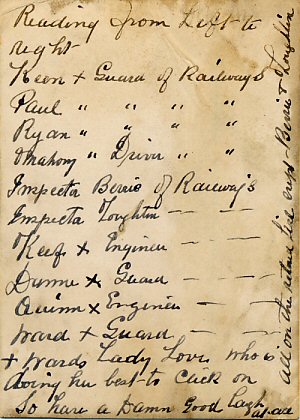 Reading from Left to
right
Keon + Guard of Railways
Paul " " " "
Ryan " " " "
OMahony " Driver " "
Inspector Berrie of Railways
Inspecta Loughlin — — —
Keefe + Engineer — — —
Dunne + Guard — — —
Quinn + Engineer — — —
Ward + Guard — — —
+ Wards Lady Love who is
doing her best to Click on
So have a Damn Good Laugh at
All on the retired list except Berrie & Loughlin